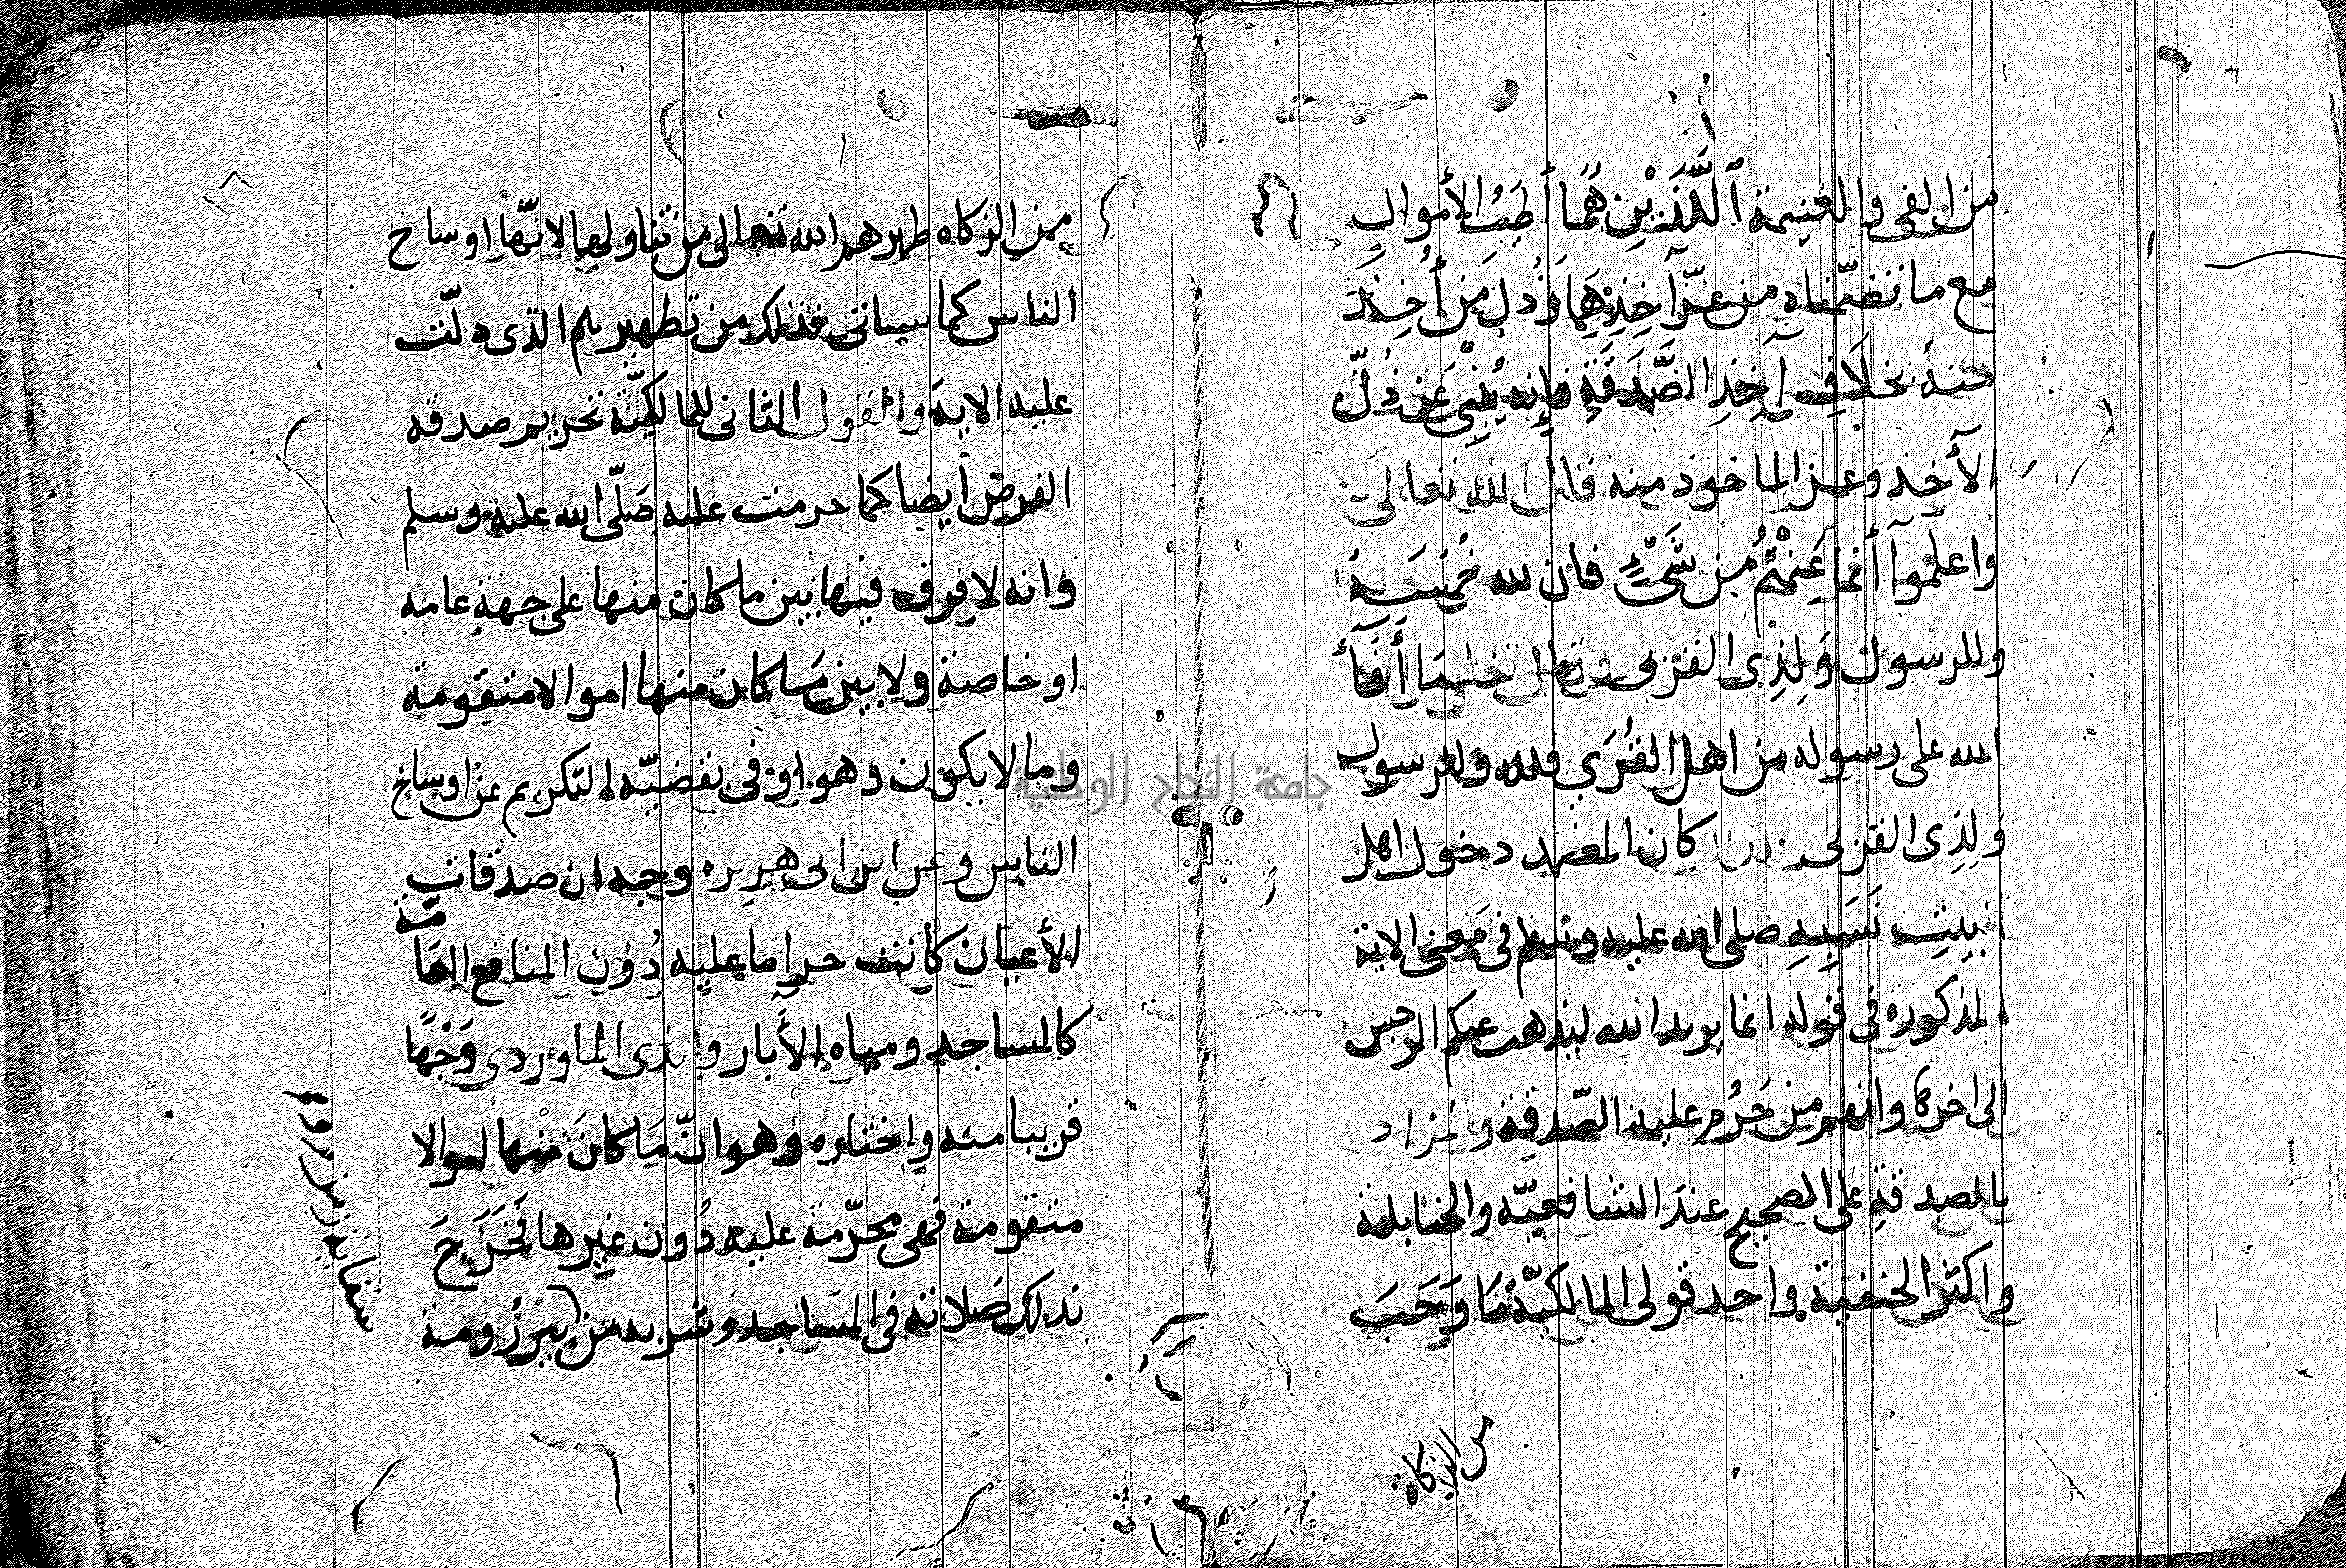 من الفي والغنيمة اللَّذَيْنِ هُمَا أطيَبُ الأموال
مع ما تضمّناه من عزّ آخِذِهِمَا وَذُل مَن أُخِذَ
منه بخلافِ آخِذِ الصَّدَقَةِ فإنه يُنْبِي عَن ذُلّ
الآخِذ وعز الماخوذ منه قال الله تعالى
واعلموآ أنما غَنِمْتُم مِن شَيْءٍ فان لله خُمُسَهُ
وللرسول وَلِذِى القربى وقال تعالى مَا أَفَآءَ
الله على رسوله من اهل القُرَى فلله وللرسول
وَلِذِى القربى كان المعتمد دخول اهل
بيتِ نَسَبِهِ صلى الله عليه وسلم فى مَعنى الاية
المذكورة فى قوله انما يريد الله ليذهب عنكم الرجس
الى اخرها وانهم من حَرُم عليه الصّدقة والمراد
بالصدقةِ على الصحيح عندَ الشافعيّه والحنابلة
واكثر الحنفية واحد قولى المالكيّة مَا وَجَبَ
من الزكاة
من الزكاه طهرهم الله تعالى من تناولها لانّها اوساخ
الناس كما سياتى فذلك من تطهيرهم الذى دلّت
عليه الاية والقول الثانى للمالكيّة تحريم صدقه
الفرض أيضا كما حرمت عليه صَلّى الله عليه وسلم
وانه لا فرق فيها بين ما كان منها على جهةٍ عامه
او خاصة ولا بين مَا كان منها اموالا متقومة
وما لا يكون وهو اوفى بقضيّه التكريم عن اوساخ
الناس وعن ابن ابى هريره وجه ان صدقات
الأعيان كانت حراما عليه دُون المنافع العَامّة
كالمساجد ومياه الآبار وابدى الماوردى وَجْهًا
قريبا منه واختاره وهو انّ مَا كانَ منْها اموالا
متقومة فهى محرّمة عليه دُون غيرها فَخَرَجَ
بذلك صَلاته فى المسَاجد وشربه من بير رُومة